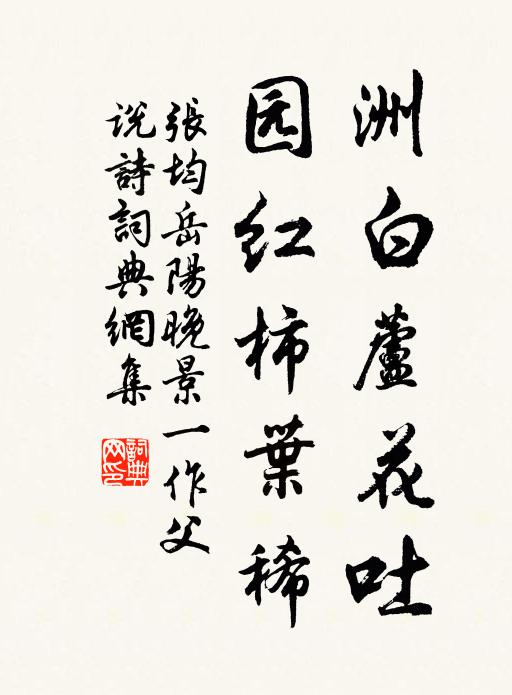 洲白蘆花吐
园红柿葉稀
張均岳陽晚景一作父
説詩詞典網集
詞典网印